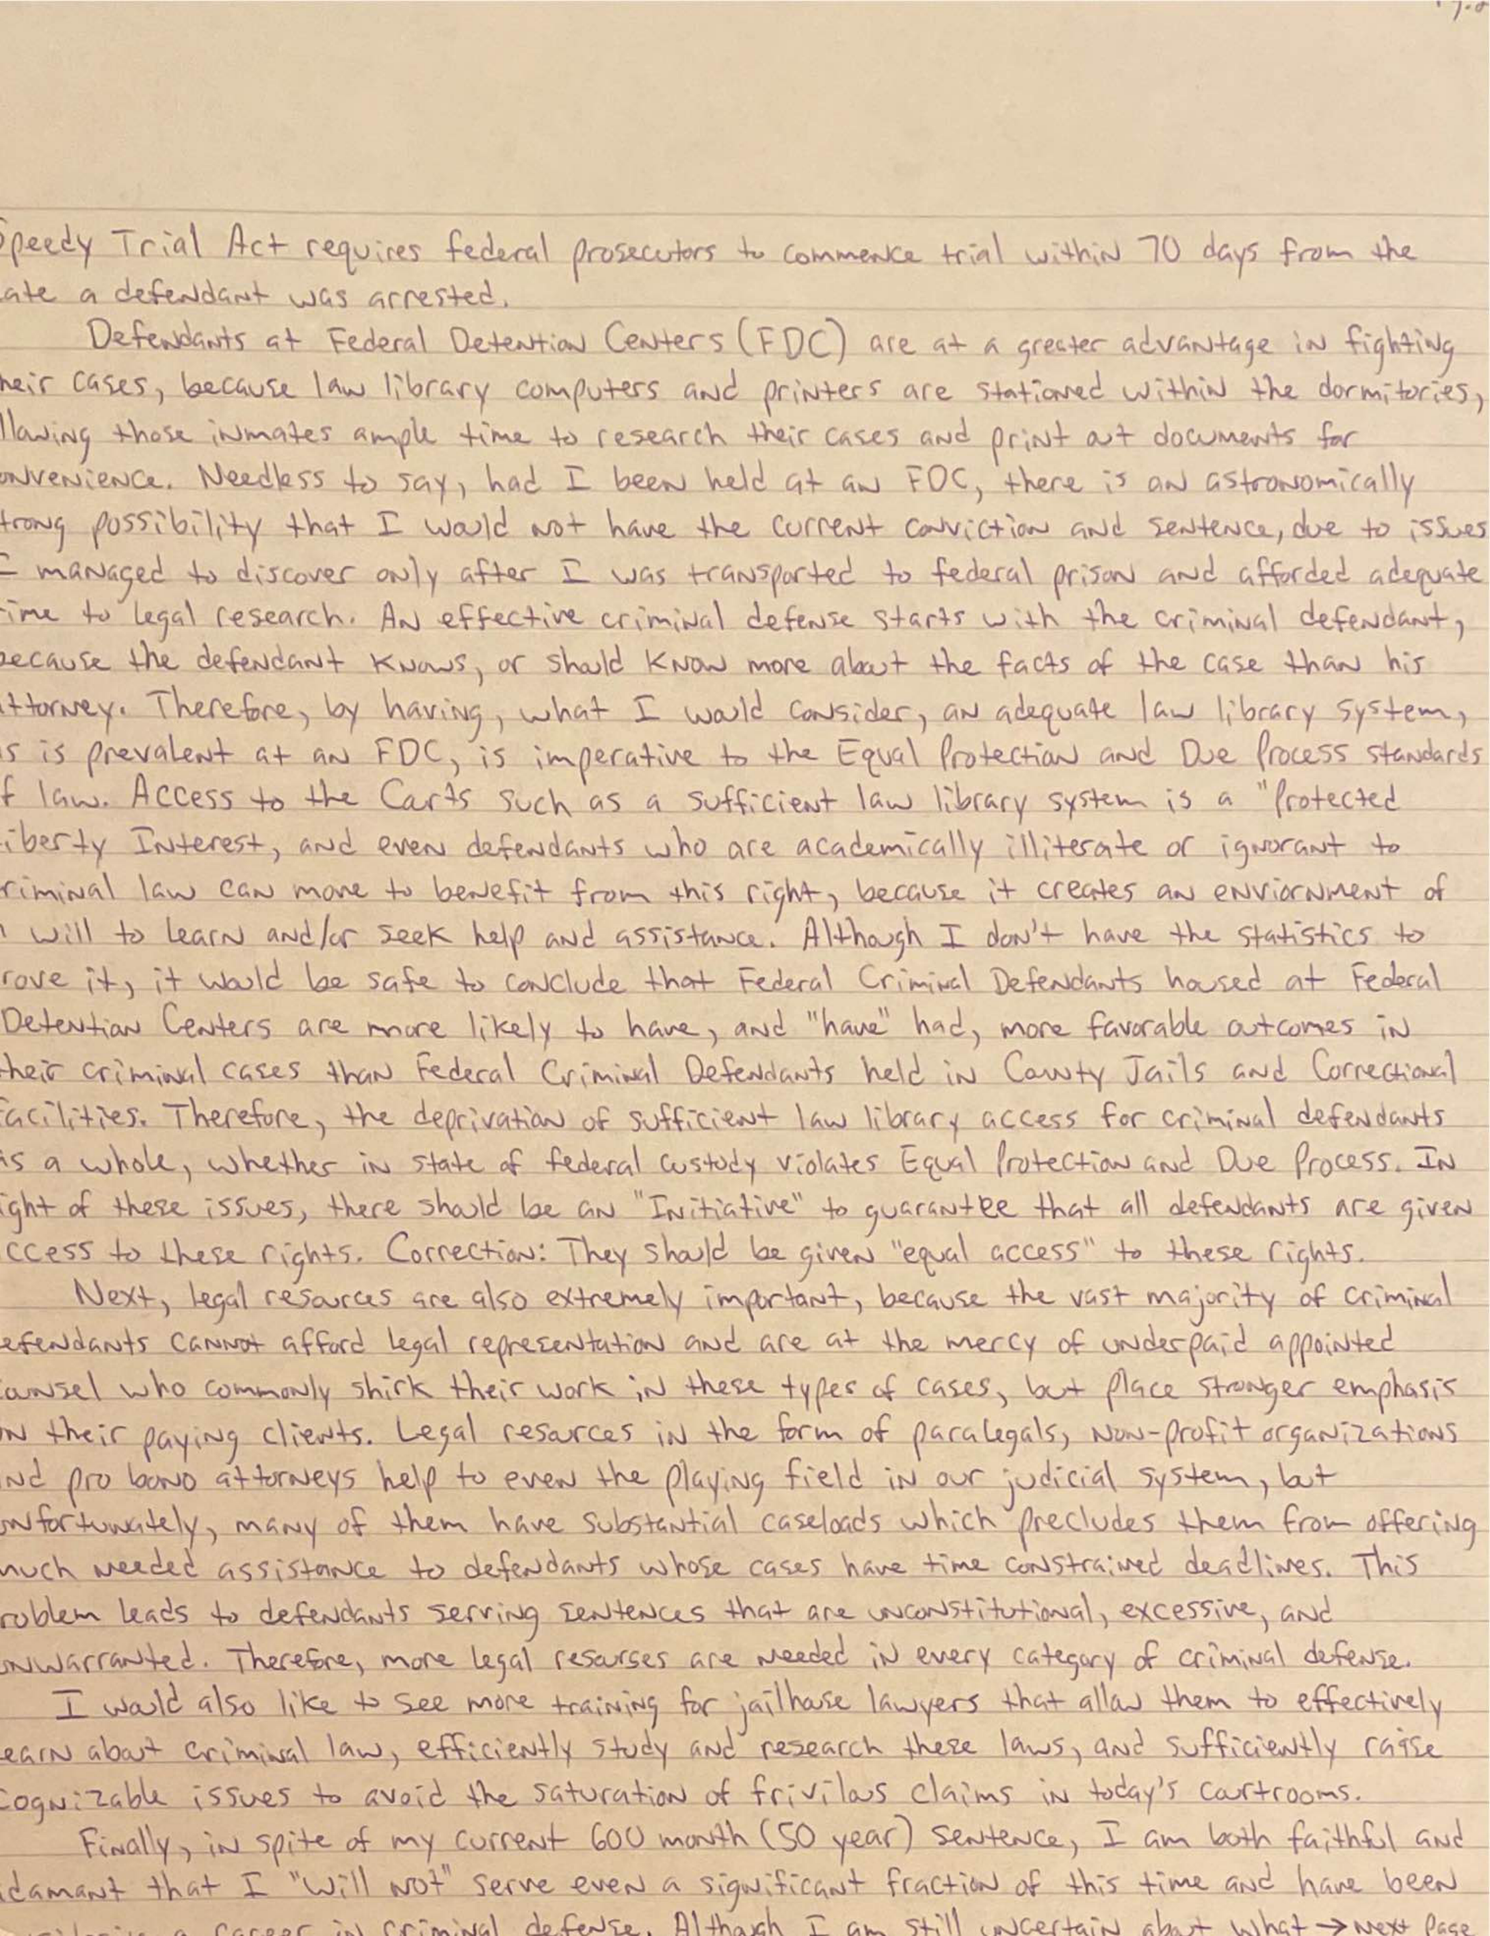 Speedy Trial Act requires federal prosecutors to commence trial within 70 days from the
ate a defendant was arrested.
Defendants at Federal Detention Centers (FDC) are at a greater advantage in fighting
heir cases, because law library computers and printers are stationed within the dormitories,
llowing those inmates ample time to research their cases and print out documents for
onvenience. Needless to say, had I been held at an FDC, there is an astronomically
trong possibility that I would not have the current conviction and sentence, due to issues
I managed to discover only after I was transported to federal prison and afforded adequate
time to legal research. An effective criminal defense starts with the criminal defendant,
because the defendant knows, or should know more about the facts of the case than his
attorney. Therefore, by having, what I would consider, an adequate law library system,
s is prevalent at an FDC, is imperative to the Equal Protection and Due Process standards
f law. Access to the Courts such as a sufficient law library system is a "Protected
iberty Interest, and even defendants who are academically illiterate or ignorant to
riminal law can more to benefit from this right, because it creates an enviornment of
will to learn and/or seek help and assistance. Although I don't have the statistics to
rove it, it would be safe to conclude that Federal Criminal Defendants housed at Federal
Detention Centers are more likely to have, and "have" had, more favorable outcomes in
their criminal cases than Federal Criminal Defendants held in County Jails and Correctional
facilities. Therefore, the deprivation of sufficient law library access for criminal defendants
as a whole, whether in state of federal custody violates Equal Protection and Due Process. In
ight of these issues, there should be an "Initiative" to guarantee that all defendants are given
ccess to these rights. Correction: They should be given "equal access" to these rights.
Next, legal resources are also extremely important, because the vast majority of criminal
efendants cannot afford legal representation and are at the mercy of underpaid appointed
ounsel who commonly shirk their work in these types of cases, but place stronger emphasis
on their paying clients. Legal resources in the form of paralegals, non-profit organizations
and pro bono attorneys help to even the playing field in our judicial system, but
unfortunately, many of them have substantial caseloads which precludes them from offering
much needed assistance to defendants whose cases have time constrained deadlines. This
roblem leads to defendants serving sentences that are unconstitutional, excessive, and
unwarranted. Therefore, more legal resourses are needed in every category of criminal defense.
I would also like to see more training for jailhouse lawyers that allow them to effectively
earn about criminal law, efficiently study and research these laws, and sufficiently raise
cognizable issues to avoid the saturation of frivilous claims in today's courtrooms.
Finally, in spite of my current 600 month (50 year) sentence, I am both faithful and
damant that I "will not" serve even a significant fraction of this time and have been
a career in criminal defense. Although I am still uncertain about what → Next Page